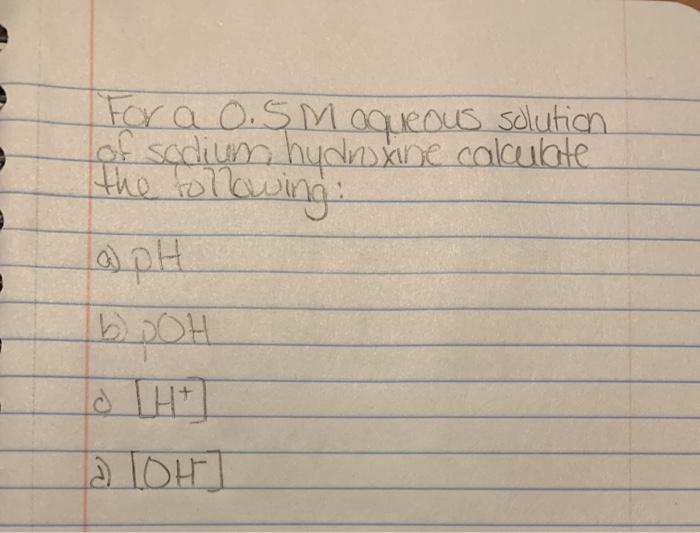 For a 0.5M aqueous solution
of sodium hydroxine calculate
the following:
a) pH
b) pOH
c) [H+]
d) [OH-]